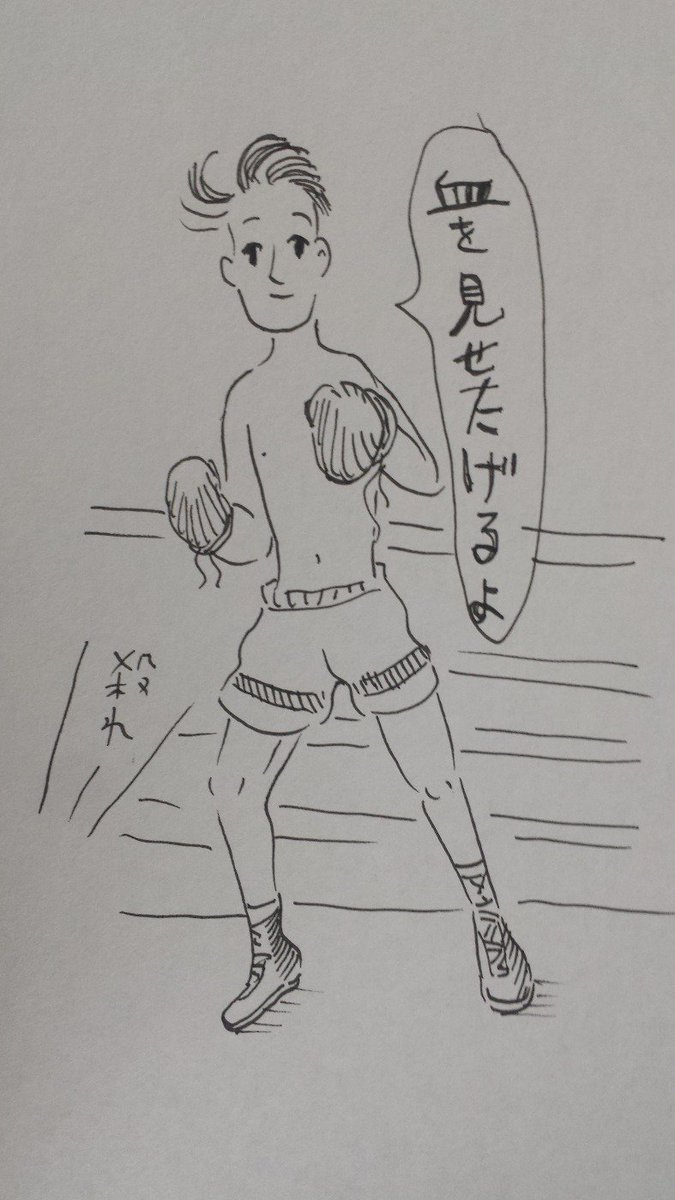 血を見せたげるよ
殺れ